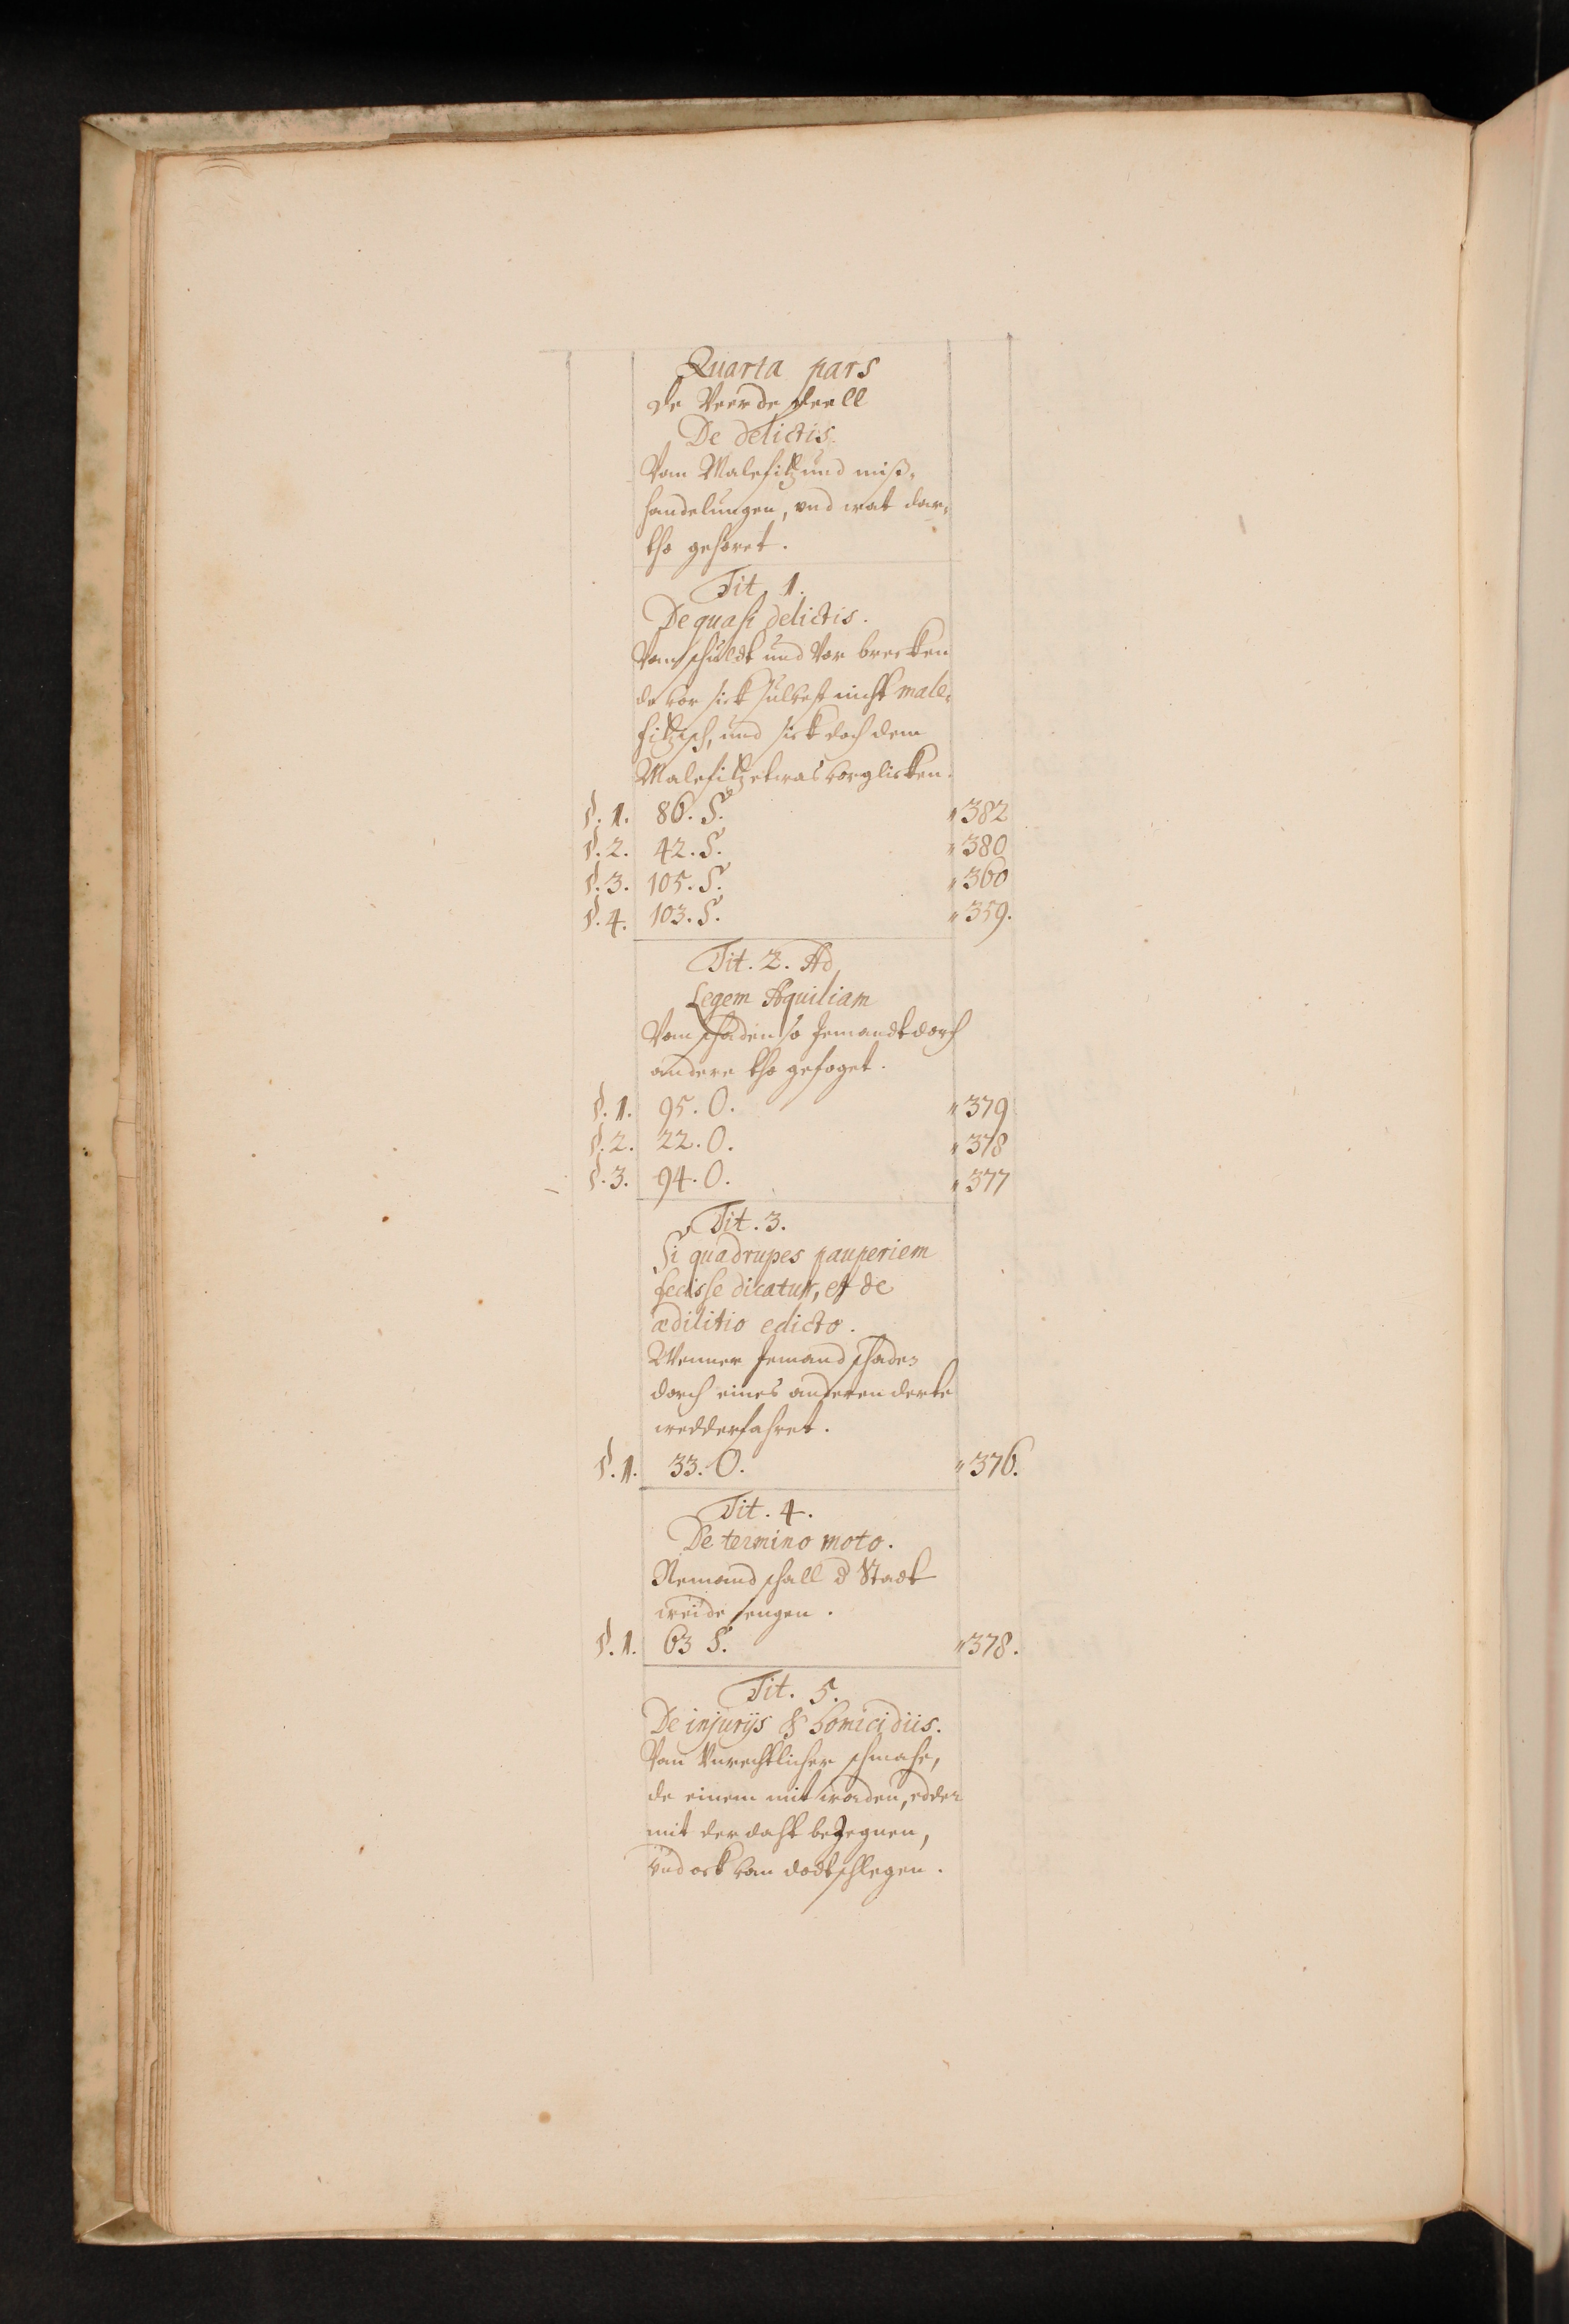 Quarta pars
de Veerde deell
De delictis.
Van Malefitz und miß-
handelungen, und wat dar-
tho gehoret.
Tit. 1.
De quasi delictis.
Van schuldt und Vor brecken
de vor sick sulvest nicht male-
fitzisch, und sick doch dem
Malefitz etwas vorglicken.
§. 1. 86. S. " 382
§. 2. 42. S. " 380
§. 3. 105. S. " 360
§. 4. 103. S. " 359.
Tit. 2. Ad
Legem Aquiliam
Vom schaden so Jemandt dorch
andere tho gefoget.
§. 1. 95. O. " 379
§. 2. 22. O. " 378
§. 3. 94. O. " 377
Tit. 3.
Si quadrupes pauperiem
fecisse dicatur, et de
ædilitio edicto.
Wenner Jemand schade
dorch eines anderen derte
wedderfahret.
§. 1. 33. O. " 376.
Tit. 4.
De termino moto.
Nemand schall d Stadt
weide engen.
§. 1. 63 S. " 378.
Tit. 5.
De injurijs & homicidiis.
Van Unrechtlicher schmahe,
de einem mit worden, edder
mit der daht bejegnen,
und ock van dodtschlegen.